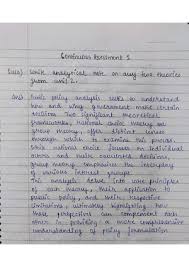 Continuous Assessment 1
Write analytical note on any two theories
from unit 2.
Public policy analysis seeks to understand
how and why government make certain
decisions. Two significant theoretical
frameworks, rational choice theory and
group theory, offer distinct lenses
through which to examine this process.
While rational choice focuses on individual
actors and their calculated decisions,
group theory emphasises the
of various interest groups.
This analysis delve into core principles
of each theory, their application to
public policy, and their respective
limitations, ultimately highlighting how
these perspectives can complement each
other in providing a more comprehensive
understanding of policy formulation